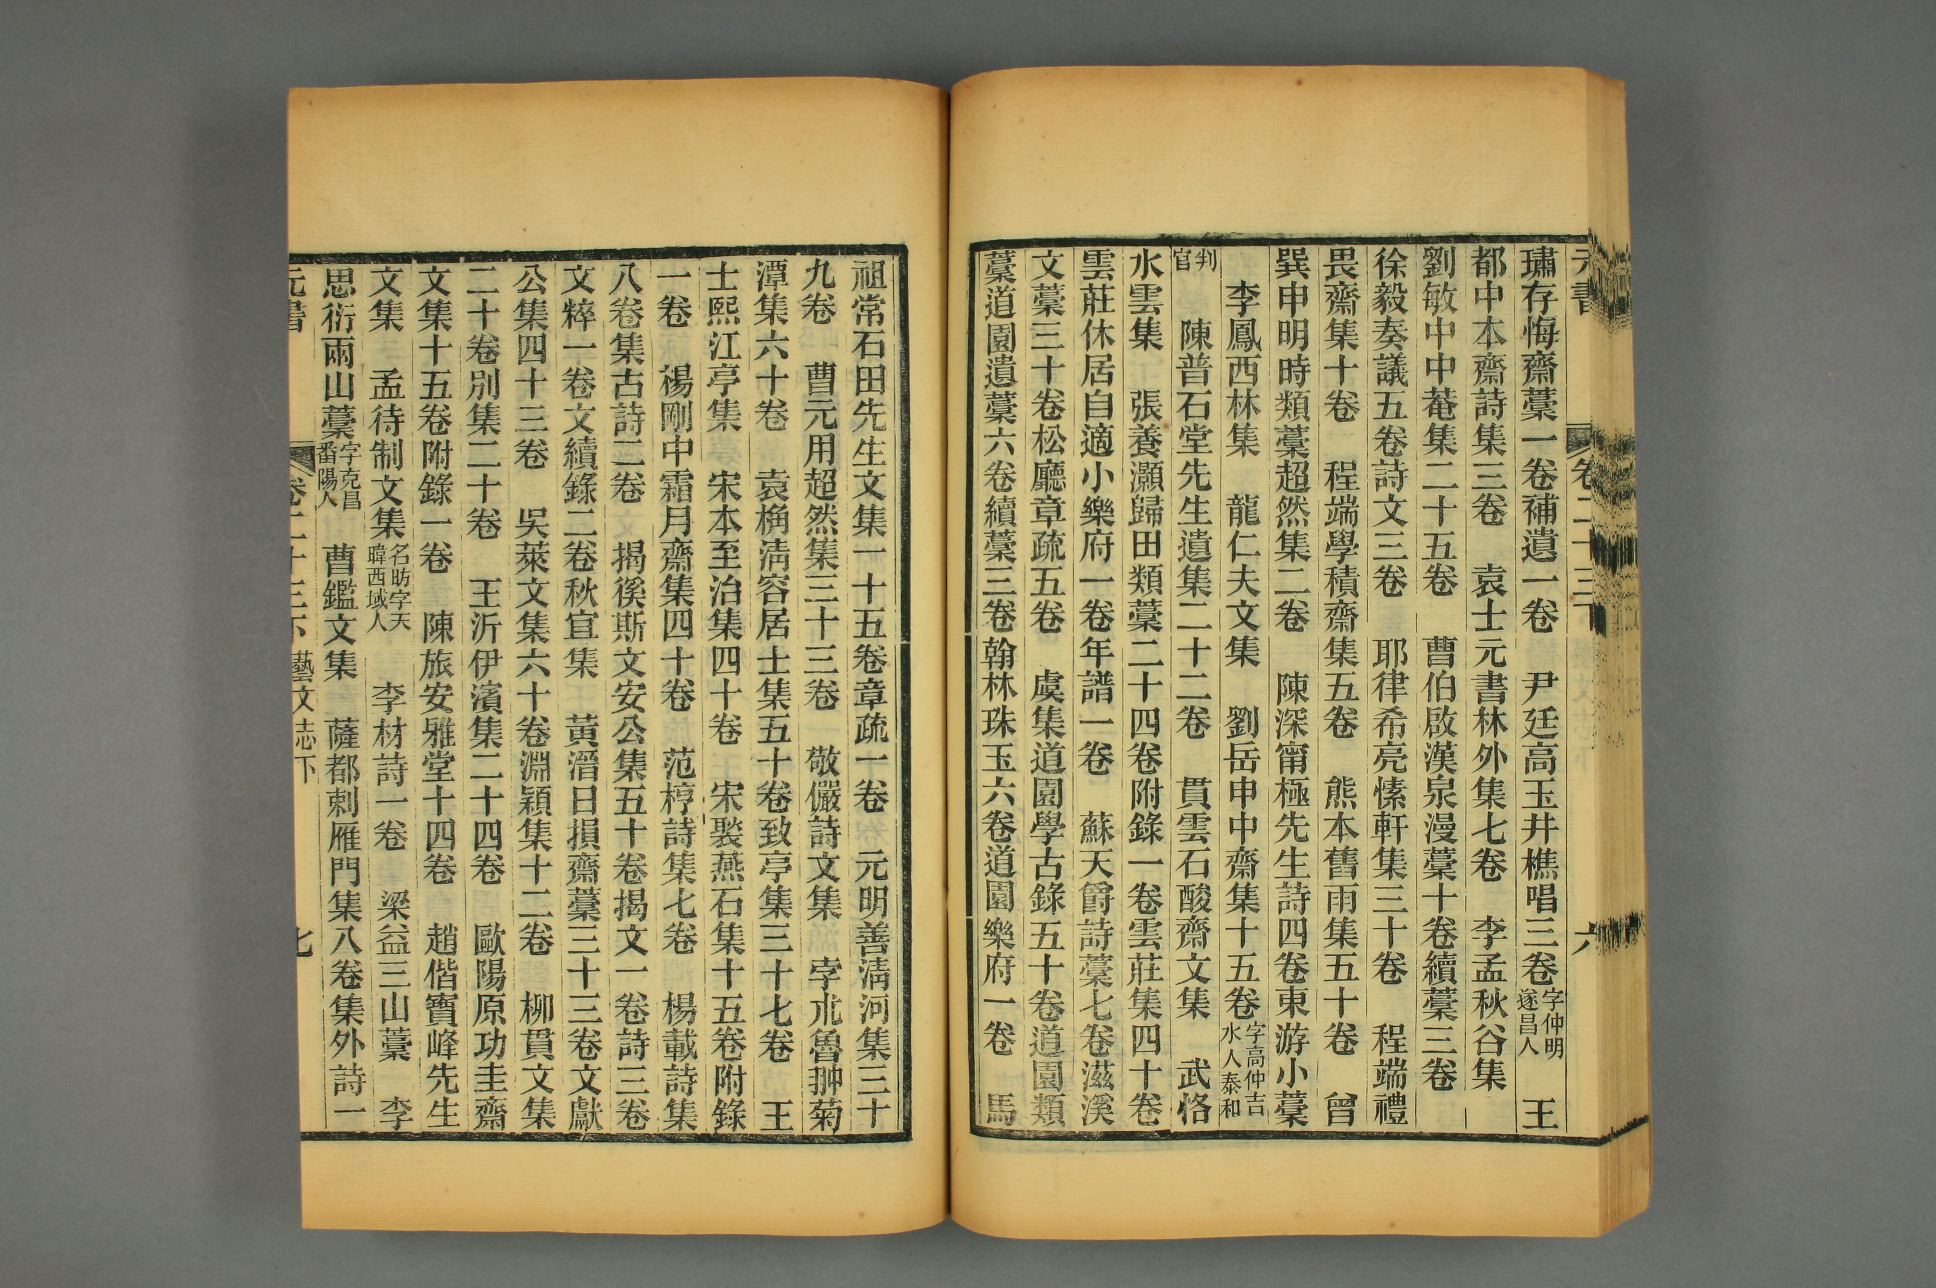 元書 卷二十三下 六
璛存悔齋藁一卷補遺一卷 尹廷高玉井樵唱三卷字仲明遂昌人 王
都中本齋詩集三卷 袁士元書林外集七卷 李孟秋谷集
劉敏中中菴集二十五卷 曹伯啟漢泉漫藁十卷續藁三卷
徐毅奏議五卷詩文三卷 耶律希亮愫軒集三十卷 程端禮
畏齋集十卷 程端學積齋集五卷 熊本舊雨集五十卷 曾
巽申明時類藁超然集二卷 陳深甯極先生詩四卷東游小藁
李鳳西林集 龍仁夫文集 劉岳申申齋集十五卷字高仲吉水人泰和
判官 陳普石堂先生遺集二十二卷 貫雲石酸齋文集 武恪
水雲集 張養灝歸田類藁二十四卷附錄一卷雲莊集四十卷
雲莊休居自適小樂府一卷年譜一卷 蘇天爵詩藁七卷滋溪
文藁三十卷松廳章疏五卷 虞集道園學古錄五十卷道園類
藁道園遺藁六卷續藁三卷翰林珠玉六卷道園樂府一卷 馬
祖常石田先生文集一十五卷章疏一卷 元明善淸河集三十
九卷 曹元用超然集三十三卷 敬儼詩文集 孛朮魯翀菊
潭集六十卷 袁桷淸容居士集五十卷致亭集三十七卷 王
士熙江亭集 宋本至治集四十卷 宋褧燕石集十五卷附錄
一卷 楊剛中霜月齋集四十卷 范梈詩集七卷 楊載詩集
八卷集古詩二卷 揭徯斯文安公集五十卷揭文一卷詩三卷
文粹一卷文續錄二卷秋宜集 黃溍日損齋藁三十三卷文獻
公集四十三卷 吳萊文集六十卷淵穎集十二卷 柳貫文集
二十卷別集二十卷 王沂伊濱集二十四卷 歐陽原功圭齋
文集十五卷附錄一卷 陳旅安雅堂十四卷 趙偕寶峰先生
文集 孟待制文集名昉字天暐西域人 李材詩一卷 梁益三山藁 李
思衍兩山藁字克昌番陽人 曹鑑文集 薩都剌雁門集八卷集外詩一
元書 卷二十三下 藝文志下 七